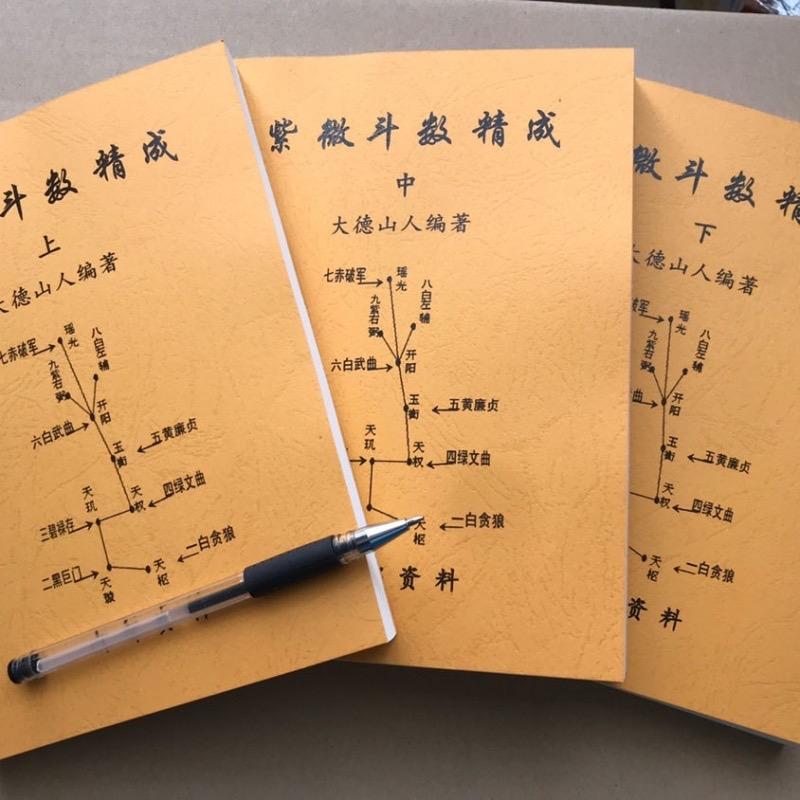 斗数精成
上
大德山人编著
七赤破军
瑶光
九紫右弼
八白左辅
六白武曲
开阳
玉衡
五黄廉贞
天玑
天权
四绿文曲
三碧禄存
二黑巨门
天璇
天枢
一白贪狼
紫微斗数精成
中
大德山人编著
七赤破军
瑶光
九紫右弼
八白左辅
六白武曲
开阳
玉衡
五黄廉贞
天玑
天权
四绿文曲
天枢
一白贪狼
资料
微斗数精
下
大德山人编著
瑶光
九紫右弼
八白左辅
曲
开阳
玉衡
五黄廉贞
天权
四绿文曲
天枢
一白贪狼
资料